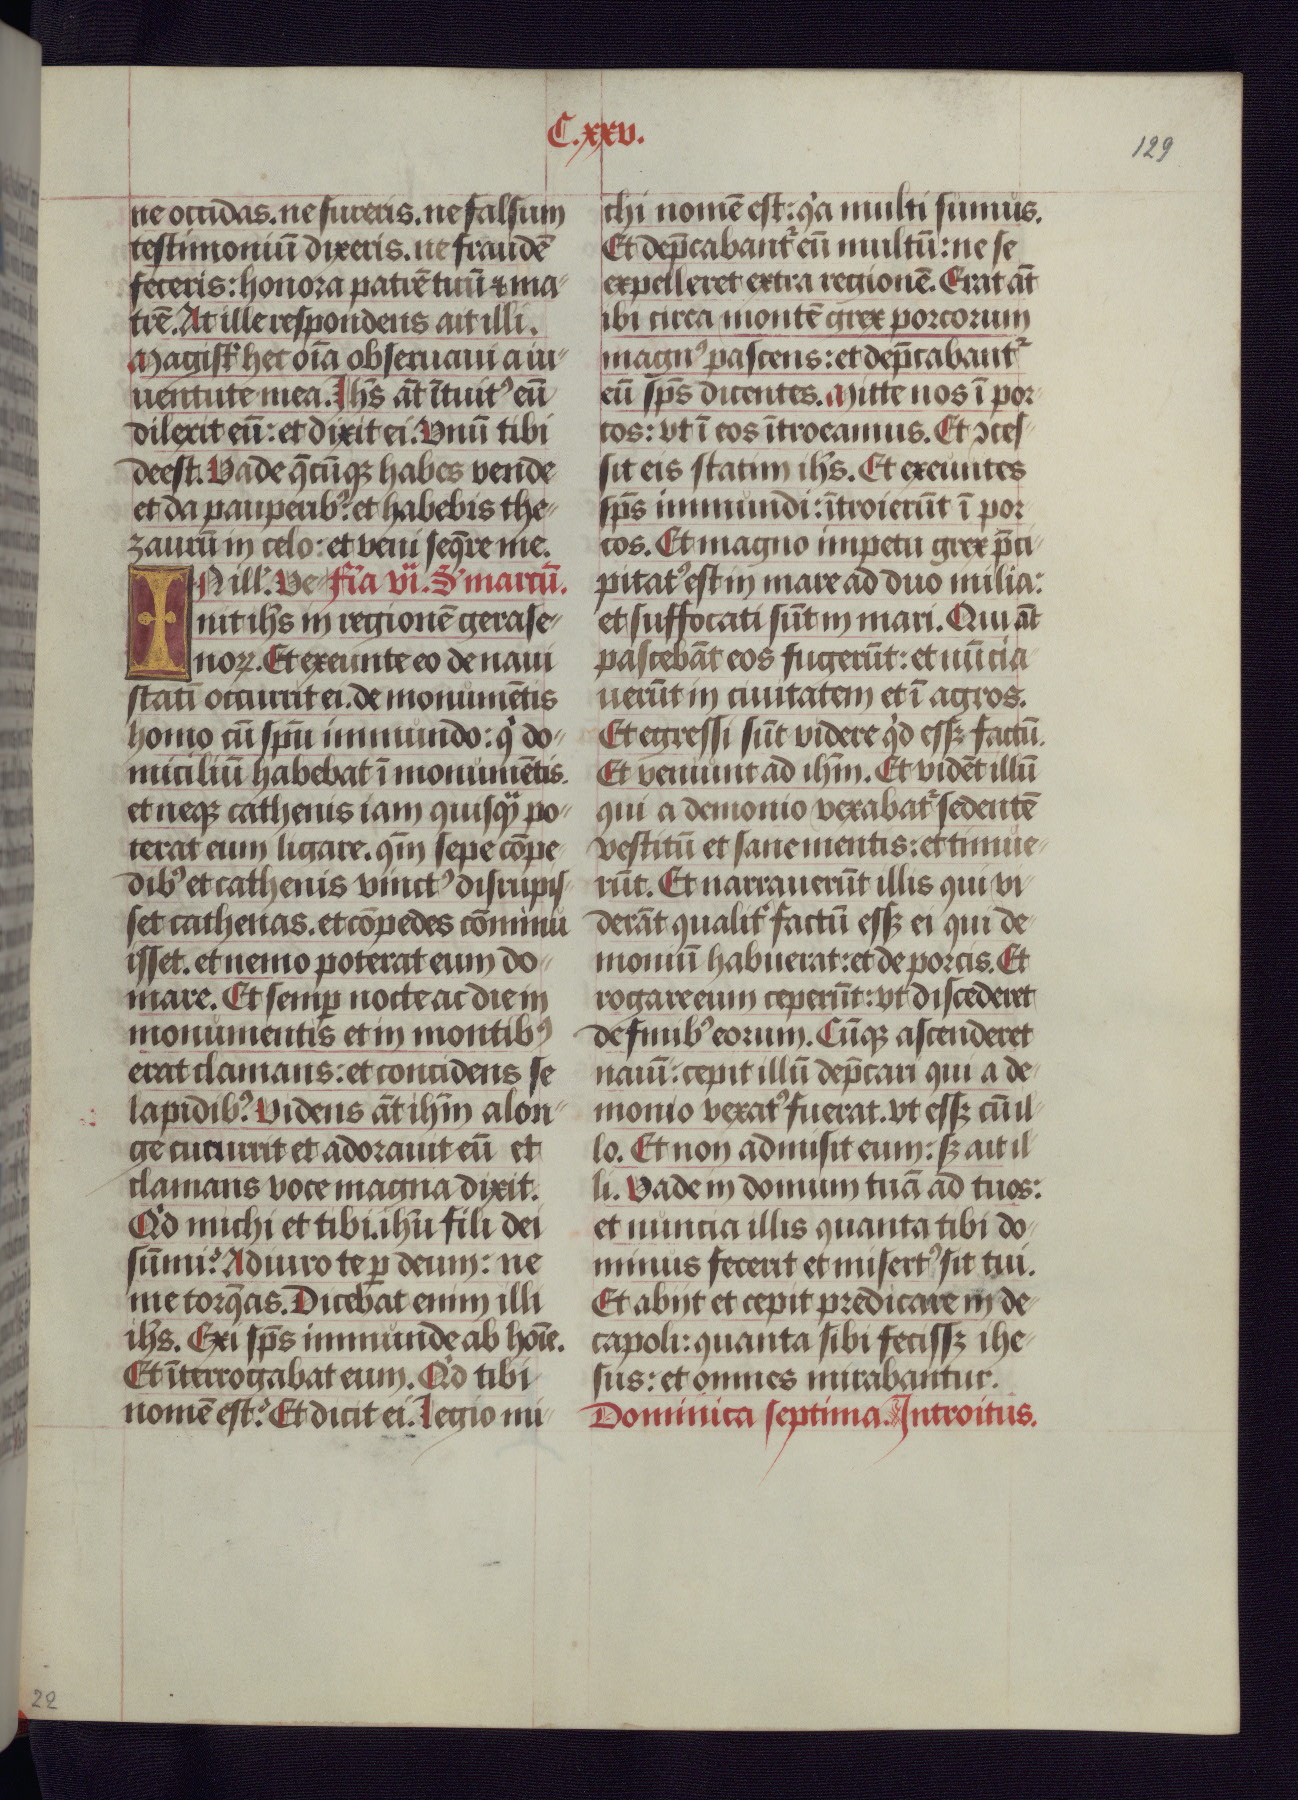 C.xxv.
129
ne occidas. ne fureris. ne falsum
testimoniū dixeris. ne fraudē
feceris: honora patrē tuū ⁊ ma-
trē. At ille respondens ait illi.
Magist̓ hec oīa obseruaui a iu-
uentute mea. Ihs̄ āt ītuitꝰ eū
dilexit eū: et dixit ei. Vnū tibi
deest. Vade q̄cūqꝫ habes vende
et da pauperibꝰ: et habebis the-
zaurū in celo: et veni seq̄re me.
IN ill̓. Ve- fr̄ia vi. S̓ marcū.
nit ihs̄ in regionē gerase-
noꝝ. Et exeunte eo de naui
statī occurrit ei. de monumētis
homo cū spū immundo: q̇ do-
miciliū habebat ī monumētis.
et neqꝫ cathenis iam quisqᷓ po-
terat eum ligare. qm̄ sepe cōpe-
dibꝰ et cathenis vinctꝰ disrupis-
set cathenas. et cōpedes cōminu
isset. et nemo poterat eum do-
mare. Et semꝑ nocte ac die in
monumentis et in montibꝰ
erat clamans: et concidens se
lapidibꝰ. Videns āt ihm̄ a lon-
ge cucurrit et adorauit eū et
clamans voce magna dixit.
Qd̓ michi et tibi. ihū fili dei
sūmi? Adiuro te ꝑ deum: ne
me torq̄as. Dicebat enim illi
ihs̄. Exi sps̄ immunde ab hoīe.
Et īterrogabat eum. Qd̓ tibi
nomē est? Et dicit ei. Legio mi-
chi nomē est: q̇a multi sumus.
Et dep̄cabant᷑ eū multū: ne se
expelleret extra regionē. Erat āt
ibi circa montē grex porcorum
magnꝰ pascens: et dep̄cabant᷑
eū sps̄ dicentes. Mitte nos ī por-
cos: vt ī eos ītroeamus. Et ꝯces-
sit eis statim ihs̄. Et exeuntes
sps̄ immundi: ītroierūt ī por-
cos. Et magno impetu grex p̄ci-
pitatꝰ est in mare ad duo milia:
et suffocati sūt in mari. Qui āt
pascebāt eos fugerūt: et nūcia-
uerūt in ciuitatem et ī agros.
Et egressi sūt videre q̇d essꝫ factū.
Et veniunt ad ihm̄. Et vidēt illū
qui a demonio vexabat᷑ sedentē
vestitū et sane mentis: et timue-
rūt. Et narrauerūt illis qui vi-
derāt qualit̓ factū essꝫ ei qui de-
moniū habuerat: et de porcis. Et
rogare eum ceperūt: vt discederet
de finibꝰ eorum. Cūqꝫ ascenderet
nauī: cepit illū dep̄cari qui a de-
monio vexatꝰ fuerat. vt essꝫ cū il-
lo. Et non admisit eum: sꝫ ait il-
li. Vade in domum tuā ad tuos:
et nuncia illis quanta tibi do-
minus fecerit et misertꝰ sit tui.
Et abijt et cepit predicare in de-
capoli: quanta sibi fecissꝫ ihe-
sus: et omnes mirabantur.
Dominica septima. Introitus.
22